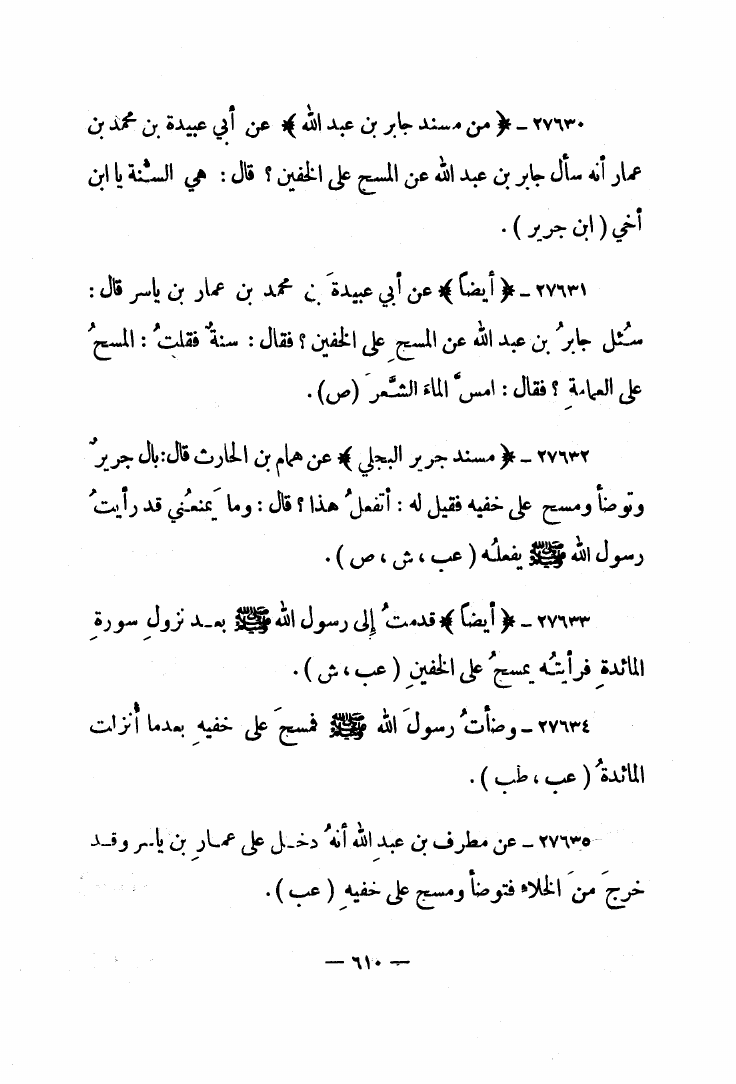 ٢٧٦٣٠ ـ ﴿ من مسند جابر بن عبد الله ﴾ عن أبي عبيدة بن محمد بن
عمار أنه سأل جابر بن عبد الله عن المسح على الخفين ؟ قال : هي السُّنة يا ابن
أخي ( ابن جرير ) .
٢٧٦٣١ ـ ﴿ أيضاً ﴾ عن أبي عبيدةَ بن محمد بن عمار بن ياسر قال :
سُئل جابرُ بن عبد الله عن المسحِ على الخفين ؟ فقال : سنةٌ فقلتُ : المسحُ
على العمامةِ ؟ فقال : امسَّ الماءَ الشَّعرَ (ص) .
٢٧٦٣٢ ـ ﴿ مسند جرير البجلي ﴾ عن همام بن الحارث قال: بال جريرٌ
وتوضأ ومسح على خفيه فقيل له : أتفعلُ هذا ؟ قال : وما يَمنعُني قد رأيتُ
رسول الله ﷺ يفعلُه ( عب ، ش ، ص ) .
٢٧٦٣٣ ـ ﴿ أيضاً ﴾ قدمتُ إلى رسول الله ﷺ بعـد نزولِ سورةِ
المائدةِ فرأيتُه يمسحُ على الخفينِ ( عب ، ش ) .
٢٧٦٣٤ ـ وضأتُ رسولَ الله ﷺ فمسحَ على خفيهِ بعدما أُنزلت
المائدةُ ( عب ، طب ) .
٢٧٦٣٥ ـ عن مطرف بن عبدِ الله أنهُ دخـل على عمـارِ بن ياسر وقـد
خرجَ منَ الخلاء فتوضأ ومسح على خفيهِ ( عب ) .
— ٦١٠ —